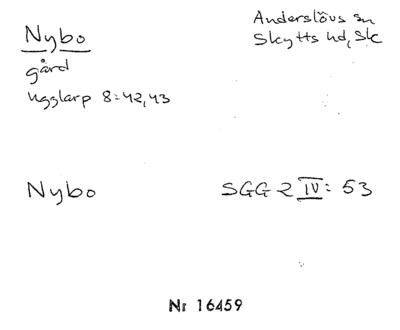 Nybo
Anderslövs sn
Skytts hd, Sk
gård
Ugglarp 8:42,43
Nybo
SGG 2 IV: 53
Nr 16459